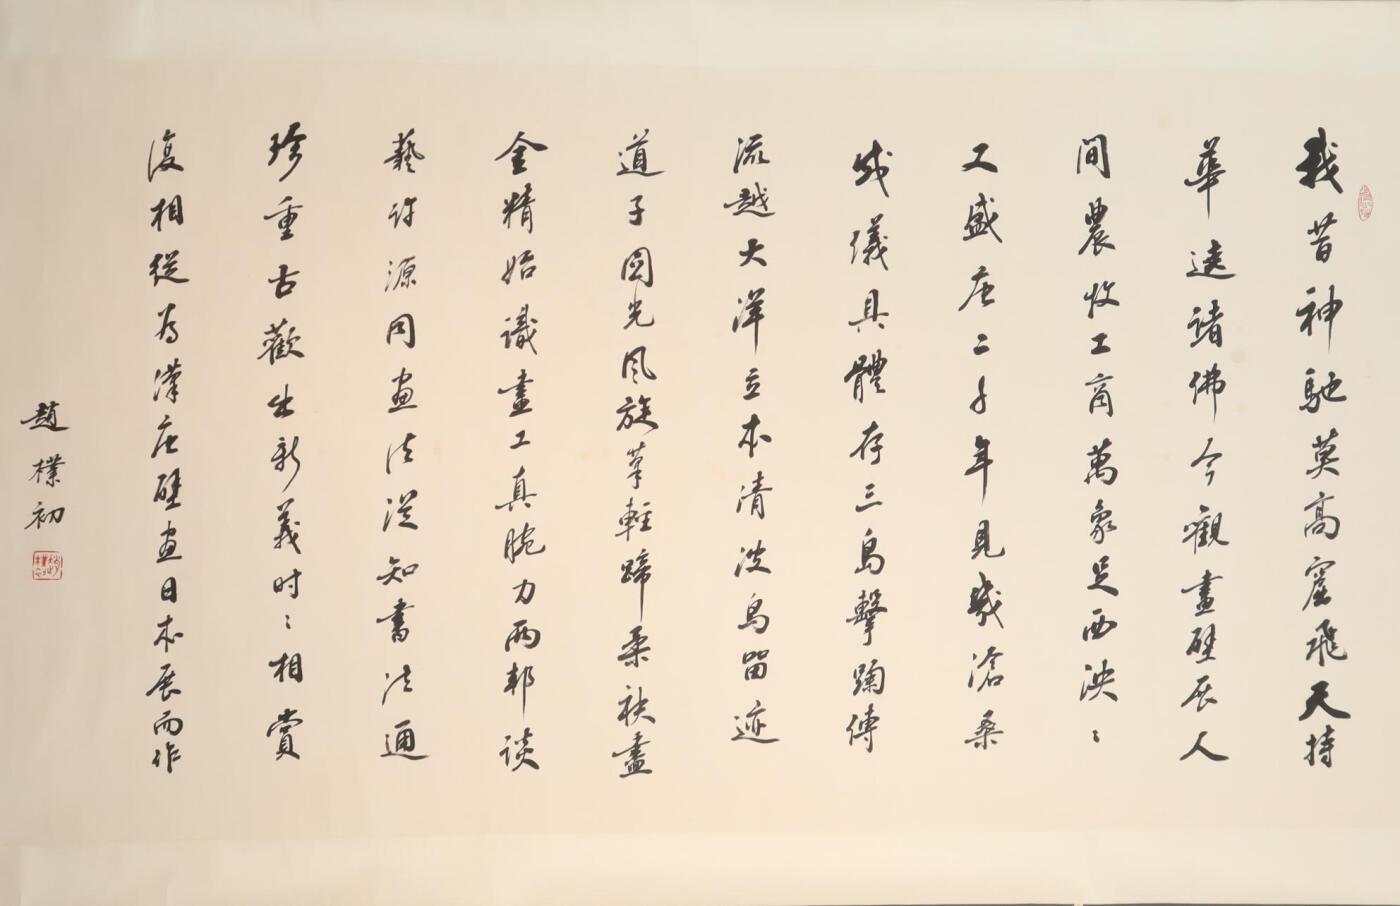 我昔神馳莫高窟飛天持
華遶諸佛今觀畫壁展人
間農牧工商萬象足西泱〻
又盛唐二千年見幾滄桑
威儀具體存三島擊鞠傳
流越大洋立本清波鳥留迹
道子圓光風旋筆輕蹄柔袂盡
金精始識畫工真腕力兩邦談
藝許源同畫法從知書法通
珍重古歡出新義時〻相賞
復相從為漢唐壁畫日本展而作
趙樸初